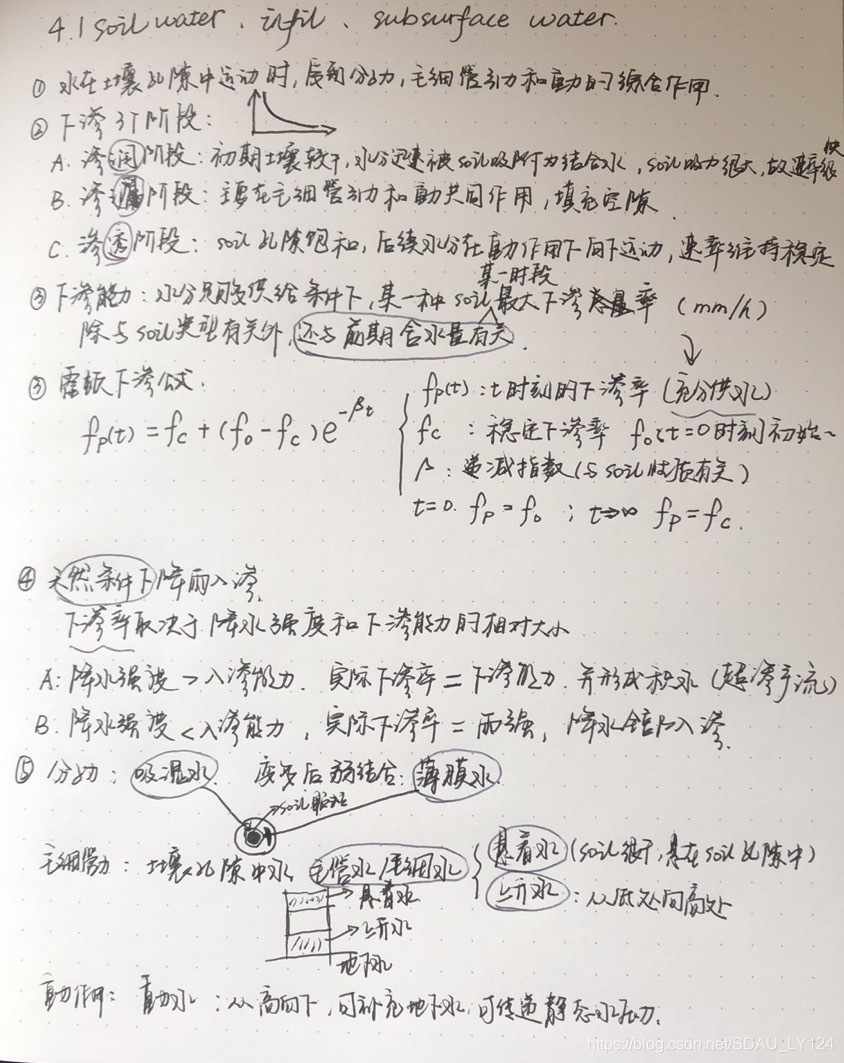 4.1 soil water、infil、subsurface water.
① 水在土壤孔隙中运动时,受到分子力,毛细管引力和重力的综合作用.
② 下渗3个阶段:
A. 渗润阶段:初期土壤较干,水分迅速被soil吸附为结合水,soil吸力很大,故速率很快
B. 渗漏阶段:主要在毛细管引力和重力共同作用,填充空隙.
C. 渗透阶段:soil孔隙饱和,后续水分在重力作用下向下运动,速率维持稳定
某一时段
③ 下渗能力:水分足够供给条件下,某一种soil最大下渗率 (mm/h)
除与soil类型有关外,还与前期含水量有关.
③ 霍顿下渗公式.
fp(t) = fc + (f₀ - fc) e^{-βt}
fp(t):t时刻的下渗率(充分供水)
fc:稳定下渗率 f₀:t=0时刻初始~
β:递减指数(与soil性质有关)
t=0. fp = f₀ ; t→∞ fp = fc.
④ 天然条件下降雨入渗.
下渗率取决于降水强度和下渗能力的相对大小
A:降水强度 > 入渗能力. 实际下渗率 = 下渗能力. 并形成积水(超渗产流)
B. 降水强度 < 入渗能力,实际下渗率 = 雨强,降水全部入渗.
⑤ 分子力:吸湿水. 变厚后弱结合:薄膜水.
soil颗粒
毛细管力:土壤孔隙中水 毛管水/毛细水
悬着水(soil很干,悬在soil孔隙中)
上升水:从低处向高处
悬着水
上升水
地下水
重力作用:重力水:从高向下,可补充地下水,可传递静态水压力.
https://blog.csdn.net/SDAU_LY124